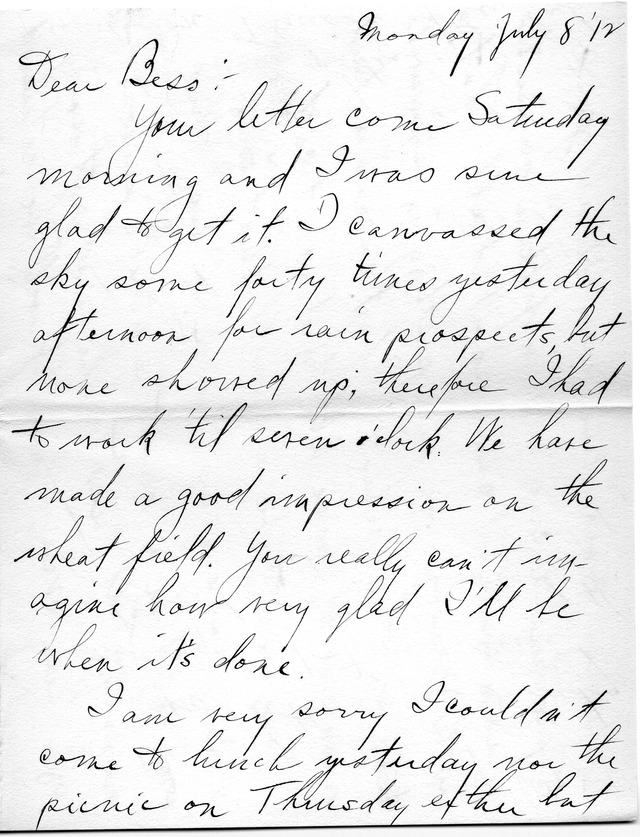 Monday July 8 '12
Dear Bess :-
Your letter come Saturday
morning and I was sure
glad to get it. I canvassed the
sky some forty times yesterday
afternoon for rain prospects, but
none showed up; therefore I had
to work 'til seven o'clock. We have
made a good impression on the
wheat field. You really can't im-
agine how very glad I'll be
when it's done.
I am very sorry I couldn't
come to lunch yesterday nor the
picnic on Thursday either but